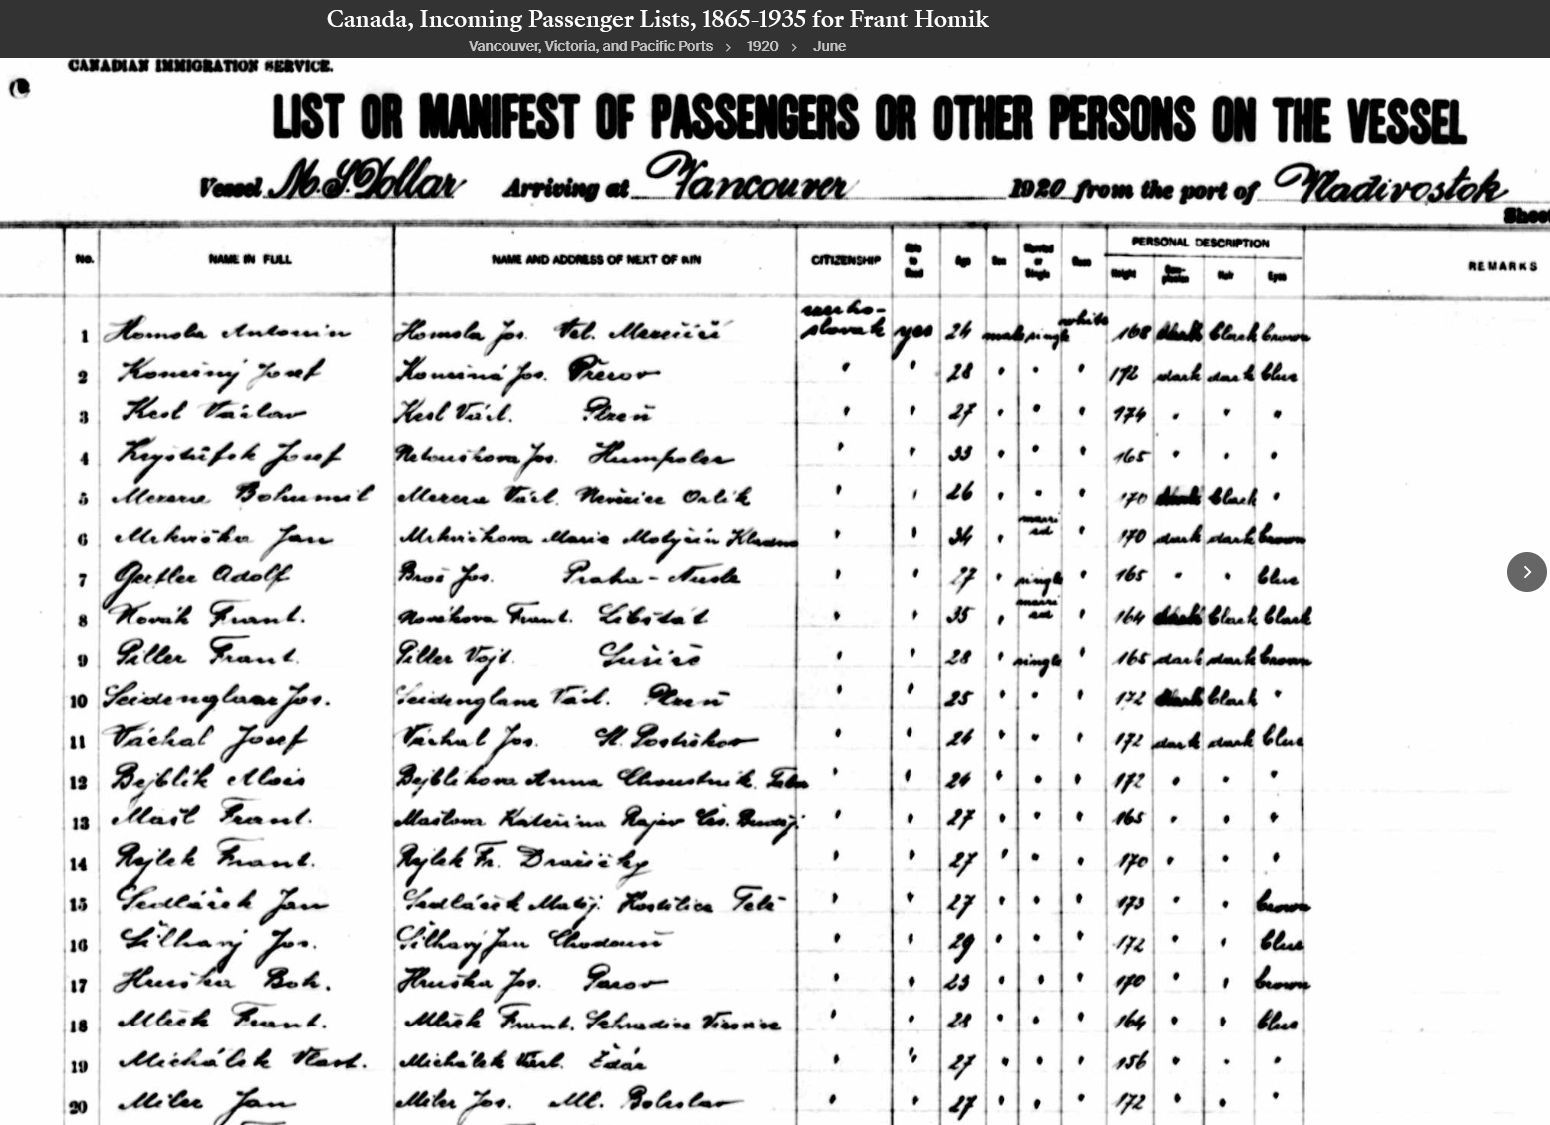 Canada, Incoming Passenger Lists, 1865-1935 for Frant Homik
Vancouver, Victoria, and Pacific Ports > 1920 > June
CANADIAN IMMIGRATION SERVICE.
LIST OR MANIFEST OF PASSENGERS OR OTHER PERSONS ON THE VESSEL
Vessel M.S. Dollar Arriving at Vancouver 1920 from the port of Vladivostok
Sheet
PERSONAL DESCRIPTION
No. NAME IN FULL NAME AND ADDRESS OF NEXT OF KIN CITIZENSHIP Able to Read Age Sex Married or Single Race Height Complexion Hair Eyes REMARKS
1 Homola Antonin Homola Jos. Vel. Meziříčí slovak yes 24 male single white 168 black brown
2 Konečný Josef Konečná Jos. Přerov " " 28 " " " 172 dark dark blue
3 Kesl Václav Kesl Václ. Plzeň " " 27 " " " 174 " " "
4 Kryštůfek Josef Netoušková Jos. Humpolec " " 33 " " " 165 " " "
5 Bohumil Václ. Orlík " " 26 " " " 170 black "
6 Mrkvička Jan Mrkvičkova Marie Kladno " " 34 " married " 170 dark dark brown
7 Gertler Adolf Brož Jos. Praha - Nusle " " 27 " single " 165 " " blue
8 Novák Frant. Novákova Frant. " " 35 " married " 164 black black
9 Piller Frant. Piller Vojt. Sušice " " 28 " single " 165 dark dark brown
10 Seidenglanz Jos. Seidenglanz Václ. Plzeň " " 25 " " " 172 black "
11 Váchal Josef Váchal Jos. " " 24 " " " 172 dark dark blue
12 Bejblík Alois Bejblíkova Anna Choustník Tabor " " 24 " " " 172 " " "
13 Mašl Frant. Mašlova Kateřina Čes. Buděj. " " 27 " " " 165 " " "
14 Rejlek Frant. Rejlek Fr. Dražičky " " 27 " " " 170 " " "
15 Sedláček Jan Sedláček Matěj. Telč " " 27 " " " 173 " " brown
16 Šilhavý Jos. Šilhavý Jan Chodouň " " 29 " " " 172 " " blue
17 Hruška Boh. Hruška Jos. " " 23 " " " 170 " " brown
18 Mlček Frant. Mlček Frant. " " 28 " " " 164 " " blue
19 Michálek Vlast. Michálek Žďár " " 27 " " " 156 " " "
20 Miler Jan Miler Jos. Ml. Boleslav " " 27 " " " 172 " " "